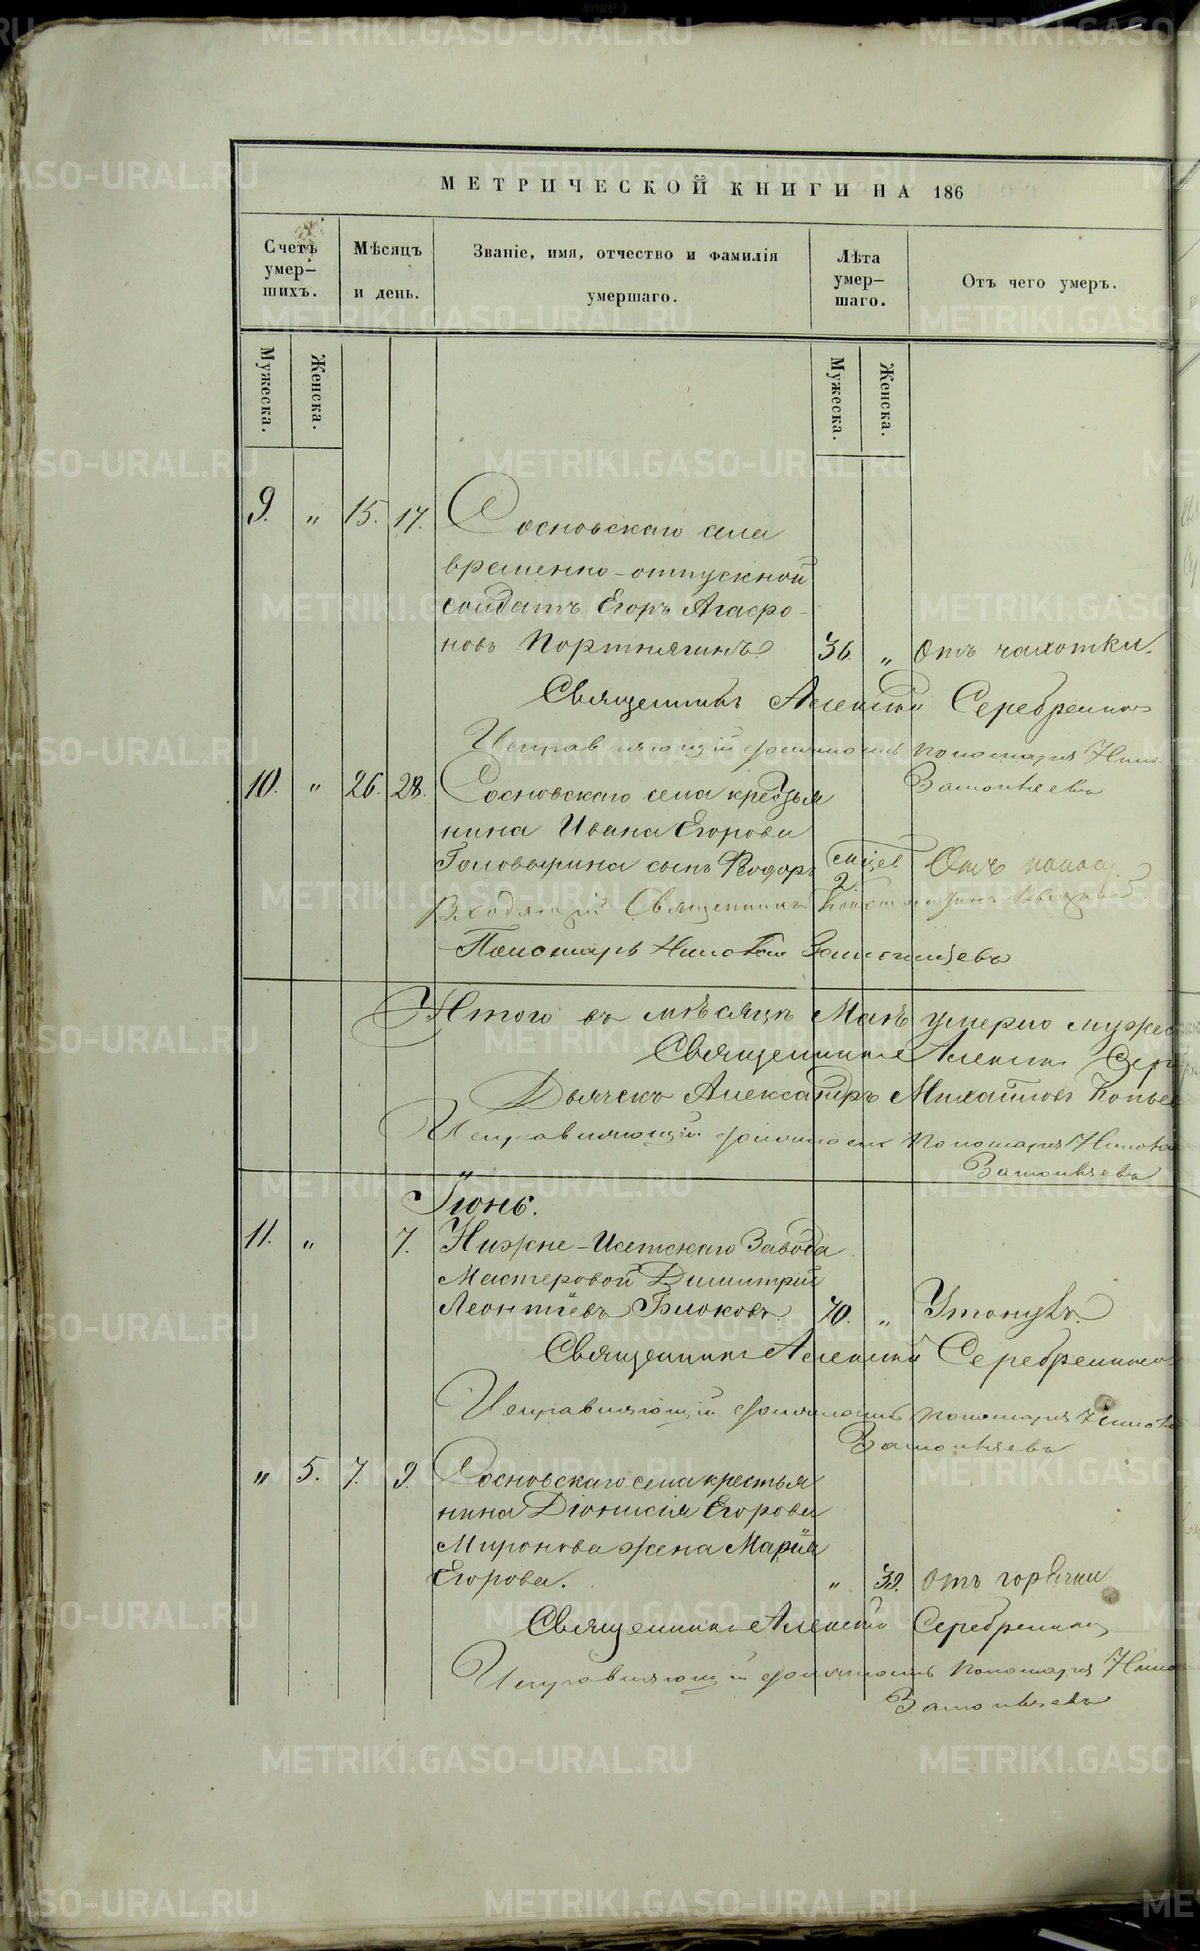 МЕТРИЧЕСКОЙ КНИГИ НА 186
Счетъ умер- шихъ.
Мѣсяцъ и день.
Званіе, имя, отчество и фамилія умершаго.
Лѣта умер- шаго.
Отъ чего умеръ.
Мужеска.
Женска.
Мужеска.
Женска.
9. " 15. 17. Сосновскаго села
временно-отпускной
солдатъ Егоръ Агафо-
новъ Портнягинъ. 36. " Отъ чахотки.
Священникъ Алексій Серебренников
Исправляющій должность пономаря
10. " 26. 28. Сосновскаго села крестья
нина Ивана Егорова
Головырина сынъ Ѳеодоръ 2 Отъ поноса
Входящій Священникъ
Пономарь
Итого въ мѣсяцѣ Маѣ умерло мужес
Священникъ Алексій Сер
Дьячекъ Александръ Михайловъ
Исправляющій должность пономаря
Іюнь.
11. " 7. Нижне-Исетскаго Завода
Мастеровой Димитрій
Леонтіевъ Блоковъ. 70. " Утонулъ.
Священникъ Алексій Серебренников
Исправляющій должность пономаря
" 5. 7. 9. Сосновскаго села крестья
нина Діонисія Егорова
Миронова жена Марія
Егорова. " 39. Отъ горячки
Священникъ Алексій Серебренников
Исправляющій должность пономаря
METRIKI.GASO-URAL.RU